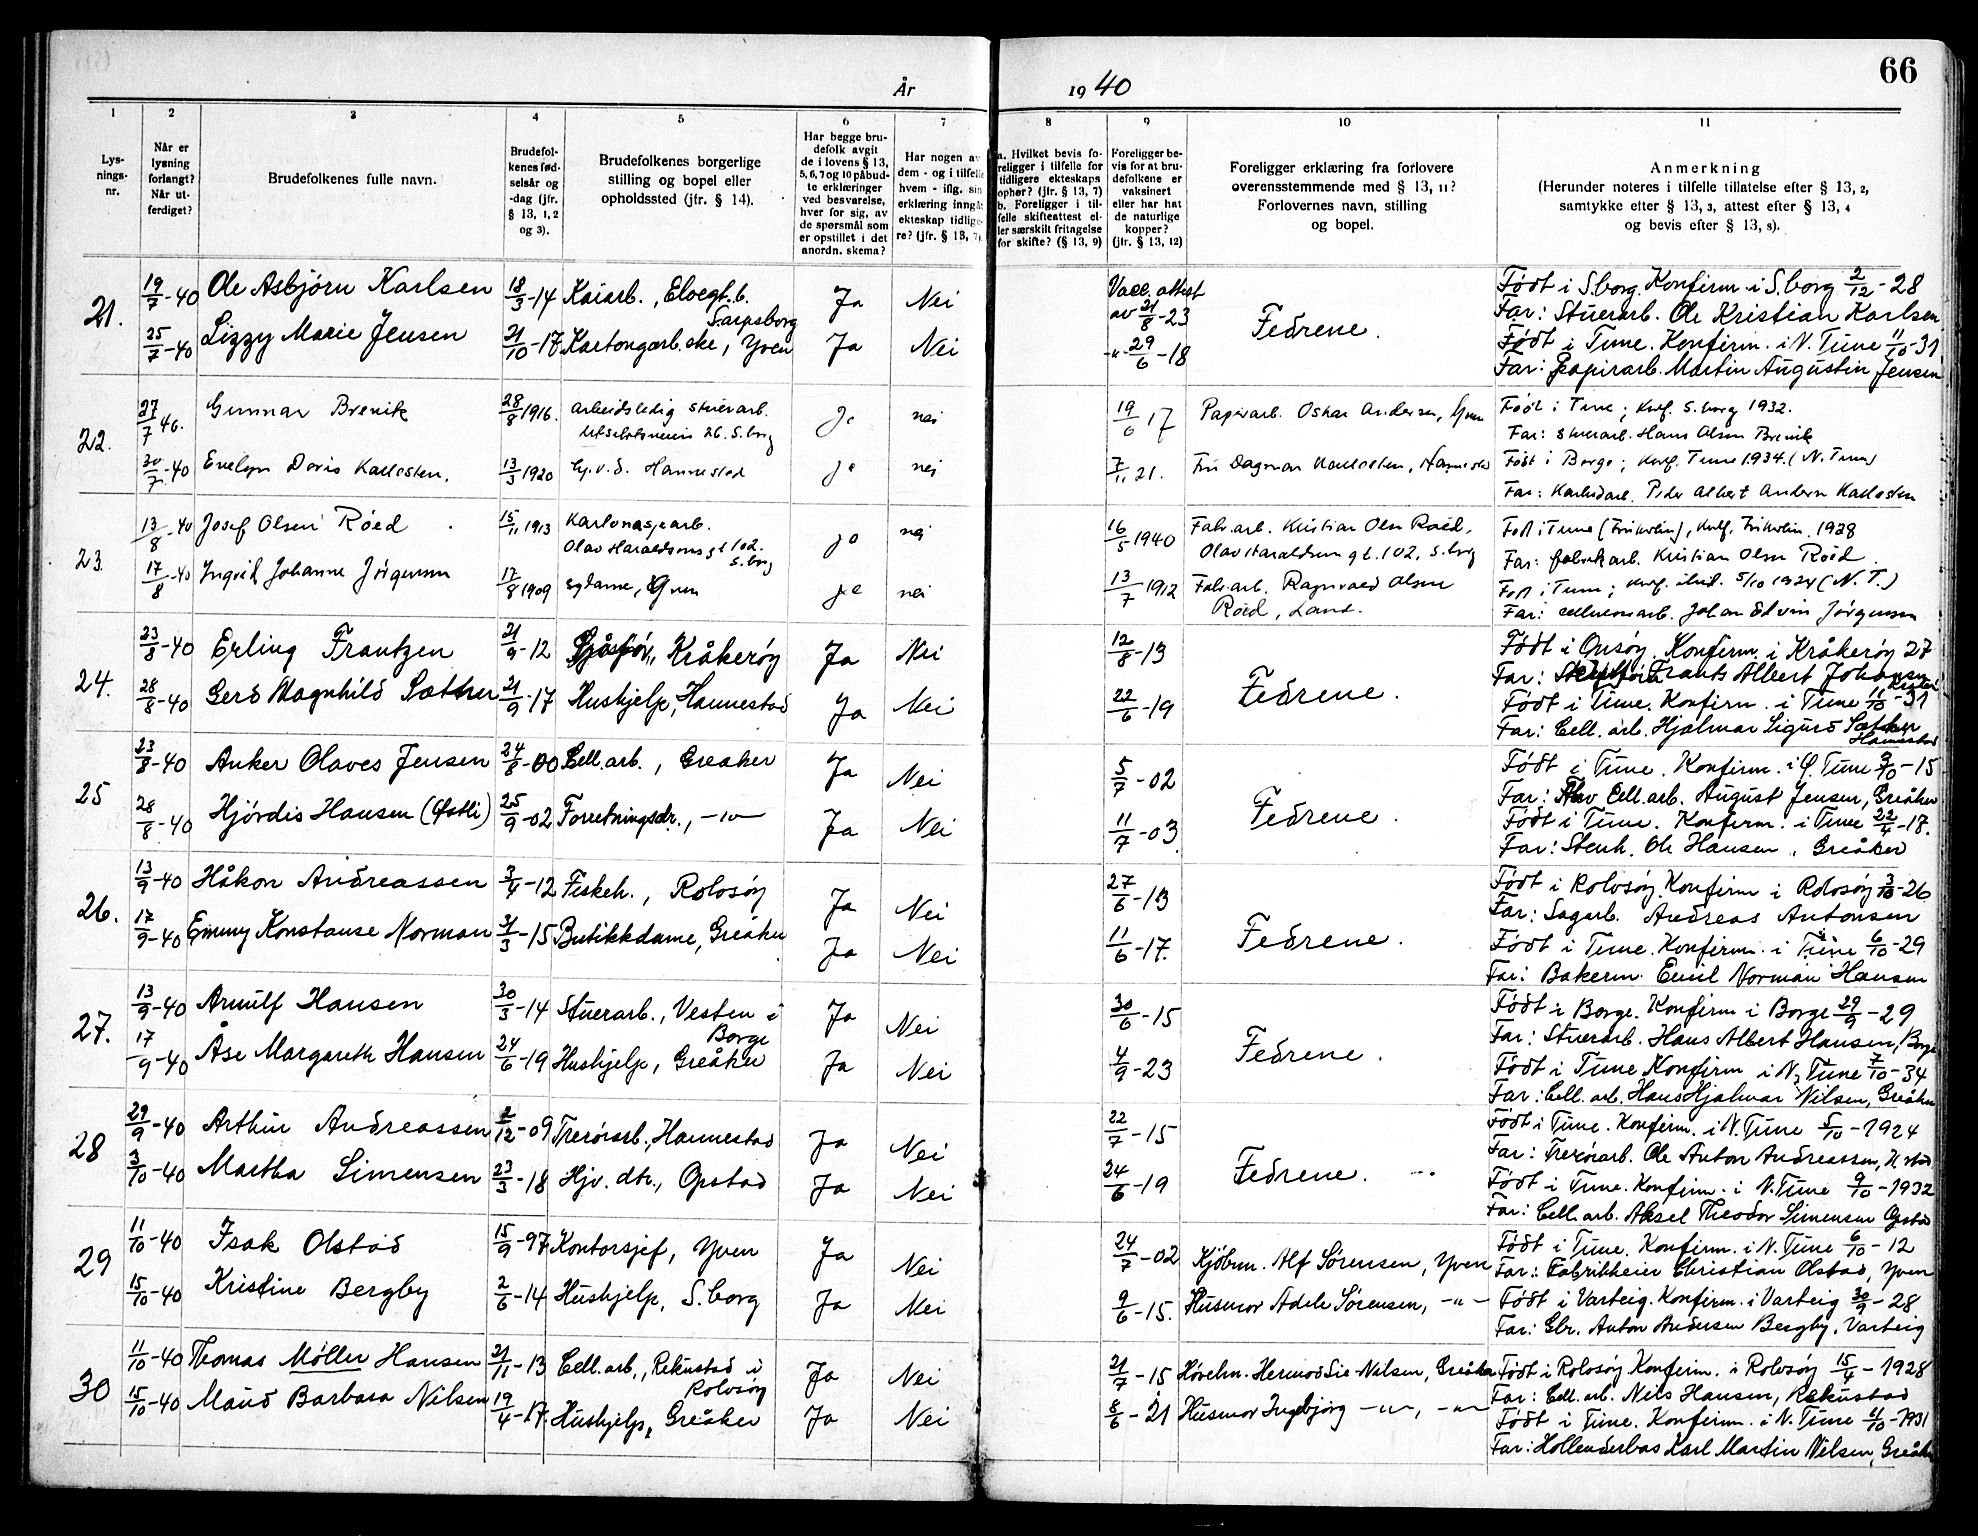 66
År 1940
1 2 3 4 5 6 7 8 9 10 11
Lysningsnr.
Når er lysning forlangt? Når utferdiget?
Brudefolkenes fulle navn.
Brudefolkenes fødselsår og -dag (jfr. § 13, 1, 2 og 3).
Brudefolkenes borgerlige stilling og bopel eller opholdssted (jfr. § 14).
Har begge brudefolk avgit de i lovens § 13, 5, 6, 7 og 10 påbudte erklæringer ved besvarelse, hver for sig, av de spørsmål som er opstillet i det anordn. skema?
Har nogen av dem - og i tilfelle hvem - iflg. sin erklæring inngåt ekteskap tidligere? (jfr. § 13, 7)
a. Hvilket bevis foreligger i tilfelle for tidligere ekteskaps ophør? (jfr. § 13, 7) b. Foreligger i tilfelle skifteattest eller særskilt fritagelse for skifte? (§ 13, 9)
Foreligger bevis for at brudefolkene er vaksinert eller har hat de naturlige kopper? (jfr. § 13, 12)
Foreligger erklæring fra forlovere overensstemmende med § 13, 11? Forlovernes navn, stilling og bopel.
Anmerkning (Herunder noteres i tilfelle tillatelse efter § 13, 2, samtykke efter § 13, 3, attest efter § 13, 4 og bevis efter § 13, 8).
21. 19/7-40 Ole Asbjørn Karlsen 18/3-14 Kaiarb., Elvegt. 6. Sarpsborg Ja Nei Vacc. attest av 21/8-23 Fedrene. Født i S.borg. Konfirm. i S.borg 2/12-28
Far: Stuerarb. Ole Kristian Karlsen
25/7-40 Lizzy Marie Jensen 21/10-17 Kartongarb.ske, Yven Ja Nei -"- 29/6-18 Født i Tune. Konfirm. i N. Tune 11/10-31
Far: Papirarb. Martin Augustin Jensen
22. 27/7 40. Gunnar Brevik 28/8 1916. Arbeidsledig stuerarb. 26. S.borg ja nei 19/6 17 Papirarb. Oskar Andersen, Yven Født i Tune; konf. S.borg 1932.
Far: stuerarb. Hans Olsen Brevik
30/7-40 Evelyn Doris Karlsten. 13/3 1920 Hj.v.d. Hannestad ja nei 7/11 21. Fru Dagmar Karlsten, Hannestad Født i Borge; konf. Tune 1934. (N. Tune)
Far: Peder Albert Andersen Karlsten
23. 13/8-40 Josef Olsen Röed 15/11 1913 Kartonasjearb. Olav Haraldsons gt 102. S.borg ja nei 16/5 1940 Fabr.arb. Kristian Olsen Roed, Olav Haraldsons gt. 102, S.borg Født i Tune, konf. 1928
Far: fabrikarb. Kristian Olsen Röed
17/8-40 Ingrid Johanne Jørgensen 17/8 1909 sydame, Yven ja nei 13/7 1912 Fabr.arb. Ragnvald Olsen Röed, Lande. Født i Tune; konf. ibid. 5/10 1924 (N. T.)
Far: cellulosearb. Johan Edvin Jørgensen
24. 23/8-40 Erling Frantzen 21/9-12 Kråkerøy Ja Nei 12/8-13 Fedrene. Født i Onsøy. Konfirm. i Kråkerøy 27
Far: Frants Albert Johansen
28/8-40 Gerd Magnhild Sæther 21/9-17 Hushjelp, Hannestad Ja Nei 22/6-19 Født i Tune. Konfirm. i Tune 11/10-31
Far: Cell. arb. Hjalmar Sigurd Sæther Hannestad
25 23/8-40 Anker Olaves Jensen 24/8-00 Cell.arb., Greåker Ja Nei 5/7-02 Fedrene. Født i Tune. Konfirm. i Tune 3/10-15
Far: Cell.arb. August Jensen, Greåker
28/8-40 Hjørdis Hansen (Østli) 25/9-02 Forretningsdr., -"- Ja Nei 11/7-03 Født i Tune. Konfirm. i Tune 22/4-18.
Far: Stenh. Ole Hansen, Greåker
26. 13/9-40 Håkon Andreassen 3/4-12 Fiskeh., Rolvsøy Ja Nei 27/6-13 Fedrene. Født i Rolvsøy. Konfirm i Rolvsøy 3/10-26
Far: Sagarb. Andreas Antonsen
17/9-40 Emmy Konstanse Norman 31/3-15 Butikkdame, Greåker Ja Nei 11/6-17. Født i Tune. Konfirm. i Tune 6/10-29
Far: Bakerm. Emil Norman Hansen
27. 13/9-40 Arnulf Hansen 30/3-14 Stuerarb., Vesten i Borge Ja Nei 30/6-15 Fedrene. Født i Borge. Konfirm i Borge 29/9-29
Far: Stuerarb. Hans Albert Hansen, Borge
17/9-40 Åse Margareth Hansen 24/6-19 Hushjelp, Greåker Ja Nei 4/9-23 Født i Tune Konfirm i N. Tune 7/10-34
Far: Cell. arb. Hans Hjalmar Nilsen, Greåker
28 29/9-40 Arthur Andreassen 2/12-09 Trerørarb., Hannestad Ja Nei 22/7-15 Fedrene. Født i Tune. Konfirm. i N. Tune 5/10-1924
Far: Trerørarb. Ole Anton Andreassen, H.stad
3/10-40 Martha Simensen 23/3-18 Hjv. dtr., Opstad Ja Nei 24/6-19 Født i Tune. Konfirm. i N. Tune 9/10-1932
Far: Cell. arb. Aksel Theodor Simensen Opstad
29 11/10-40 Isak Olstad 15/9-97 Kontorsjef, Yven Ja Nei 24/7-02 Kjøbm. Alf Sørensen, Yven Født i Tune. Konfirm. i N. Tune 6/10-12
Far: Fabrikkeier Christian Olstad, Yven
15/10-40 Kristine Bergby 2/6-14 Hushjelp, S.borg Ja Nei 9/6-15. Husmor Adele Sørensen, -"- Født i Varteig. Konfirm. i Varteig 30/9-28
Far: Gbr. Anton Andersen Bergby, Varteig
30 11/10-40 Thomas Møller Hansen 21/11-13 Cell. arb., Rekustad i Rolvsøy Ja Nei 21/7-15 Hermod Nilsen, Greåker Født i Rolvsøy Konfirm. i Rolvsøy 15/4-1928
Far: Cell. arb. Nils Hansen, Rekustad
15/10-40 Maud Barbara Nilsen 19/4-17. Hushjelp, Greåker Ja Nei 8/6-21 Husmor Ingebjørg -"-, -"- Født i Tune. Konfirm. i N. Tune 11/10-1931
Far: Hollenderbas Karl Martin Nilsen, Greåker